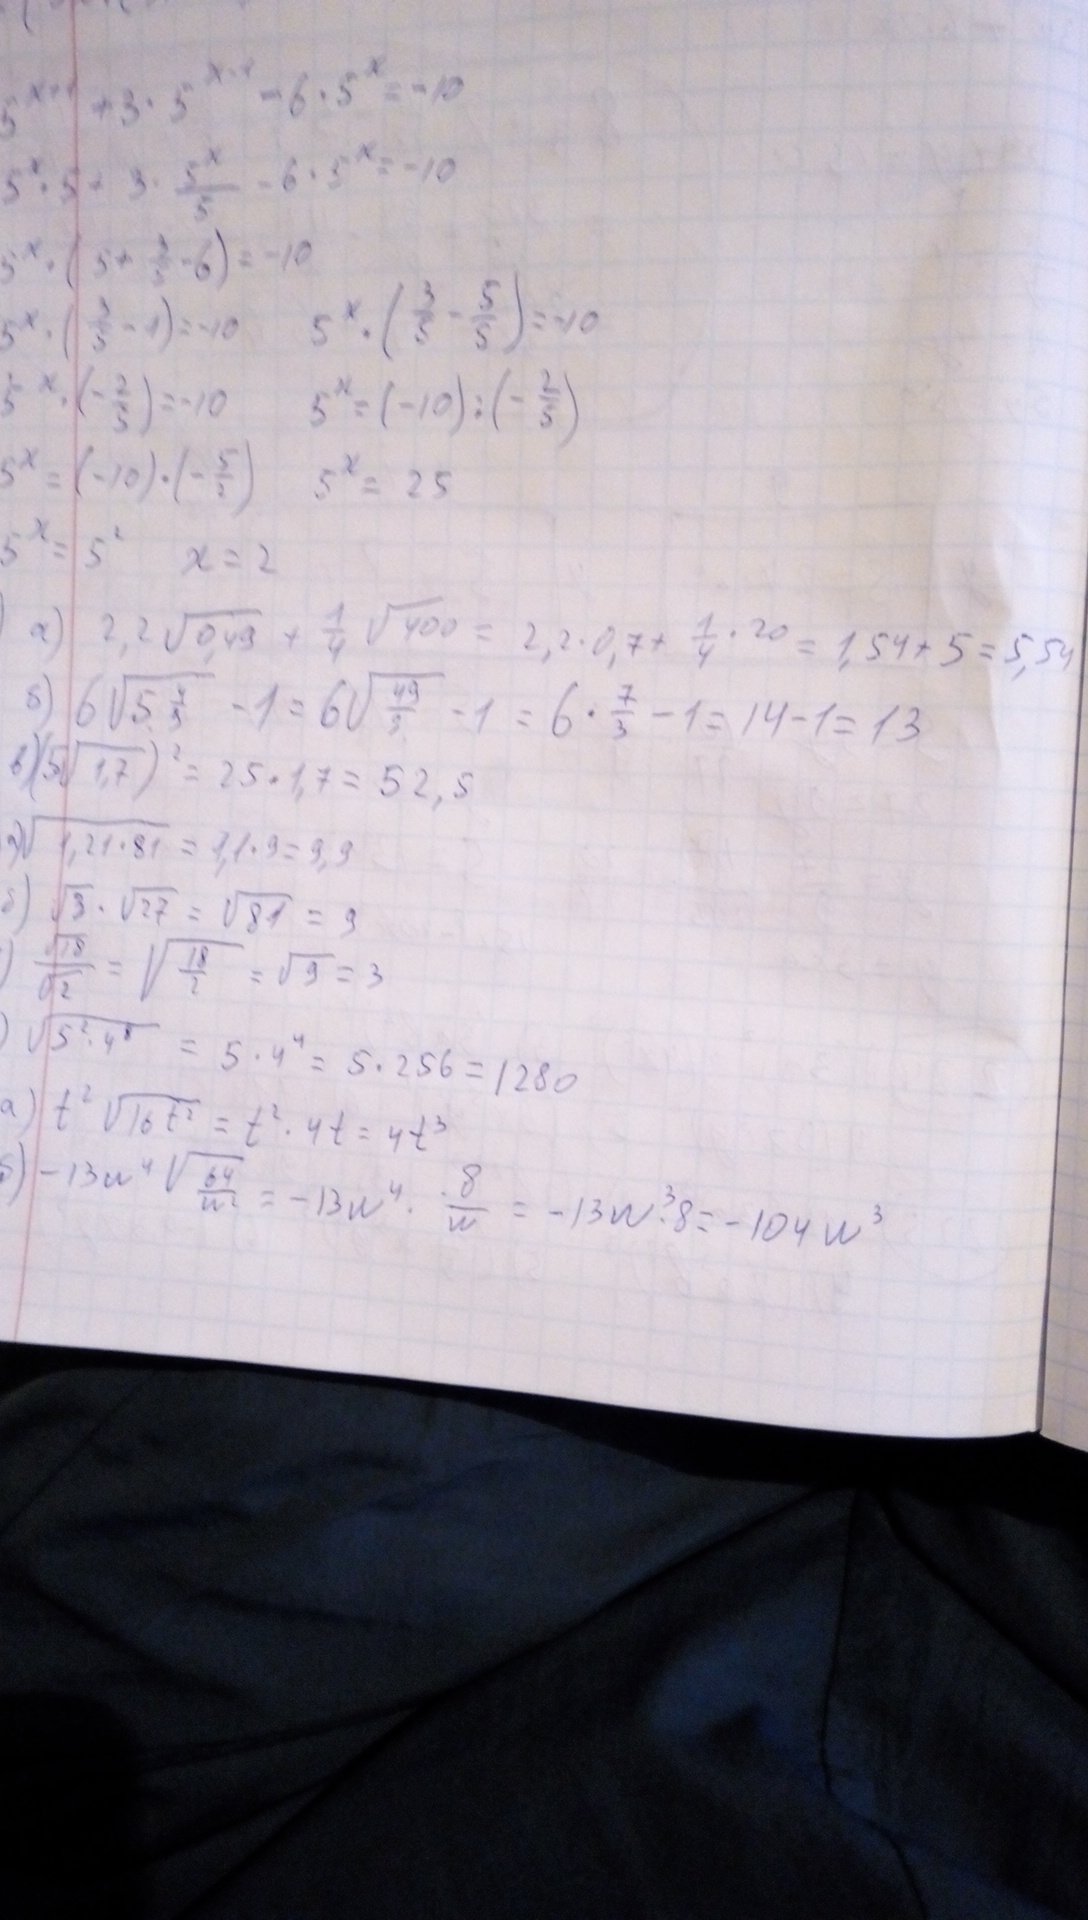 5^(x+1) + 3 · 5^(x-1) - 6 · 5^x = -10
5^x · 5 + 3 · 5^x/5 - 6 · 5^x = -10
5^x · (5 + 3/5 - 6) = -10
5^x · (3/5 - 1) = -10 5^x · (3/5 - 5/5) = -10
5^x · (-2/5) = -10 5^x = (-10) : (-2/5)
5^x = (-10) · (-5/2) 5^x = 25
5^x = 5² x = 2
) а) 2,2√0,49 + 1/4 √400 = 2,2 · 0,7 + 1/4 · 20 = 1,54 + 5 = 5,54
б) 6√(5 4/9) - 1 = 6√(49/9) - 1 = 6 · 7/3 - 1 = 14 - 1 = 13
в) (5√1,7)² = 25 · 1,7 = 52,5
а) √(1,21 · 81) = 1,1 · 9 = 9,9
б) √3 · √27 = √81 = 9
) √18/√2 = √(18/2) = √9 = 3
) √(5² · 4⁸) = 5 · 4⁴ = 5 · 256 = 1280
а) t² √(16t²) = t² · 4t = 4t³
б) -13n⁴ √(64/n²) = -13n⁴ · 8/n = -13n³ · 8 = -104n³